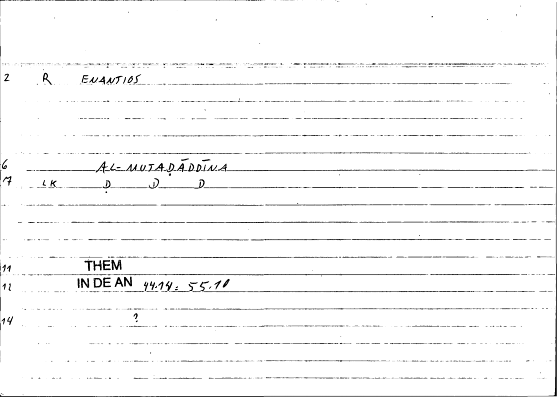 2 R ENANTIOS
6 AL-MUTAḌĀDDĪNA
7 LK Ḍ D D
11 THEM
12 IN DE AN 44.14 : 55.10
14 ?